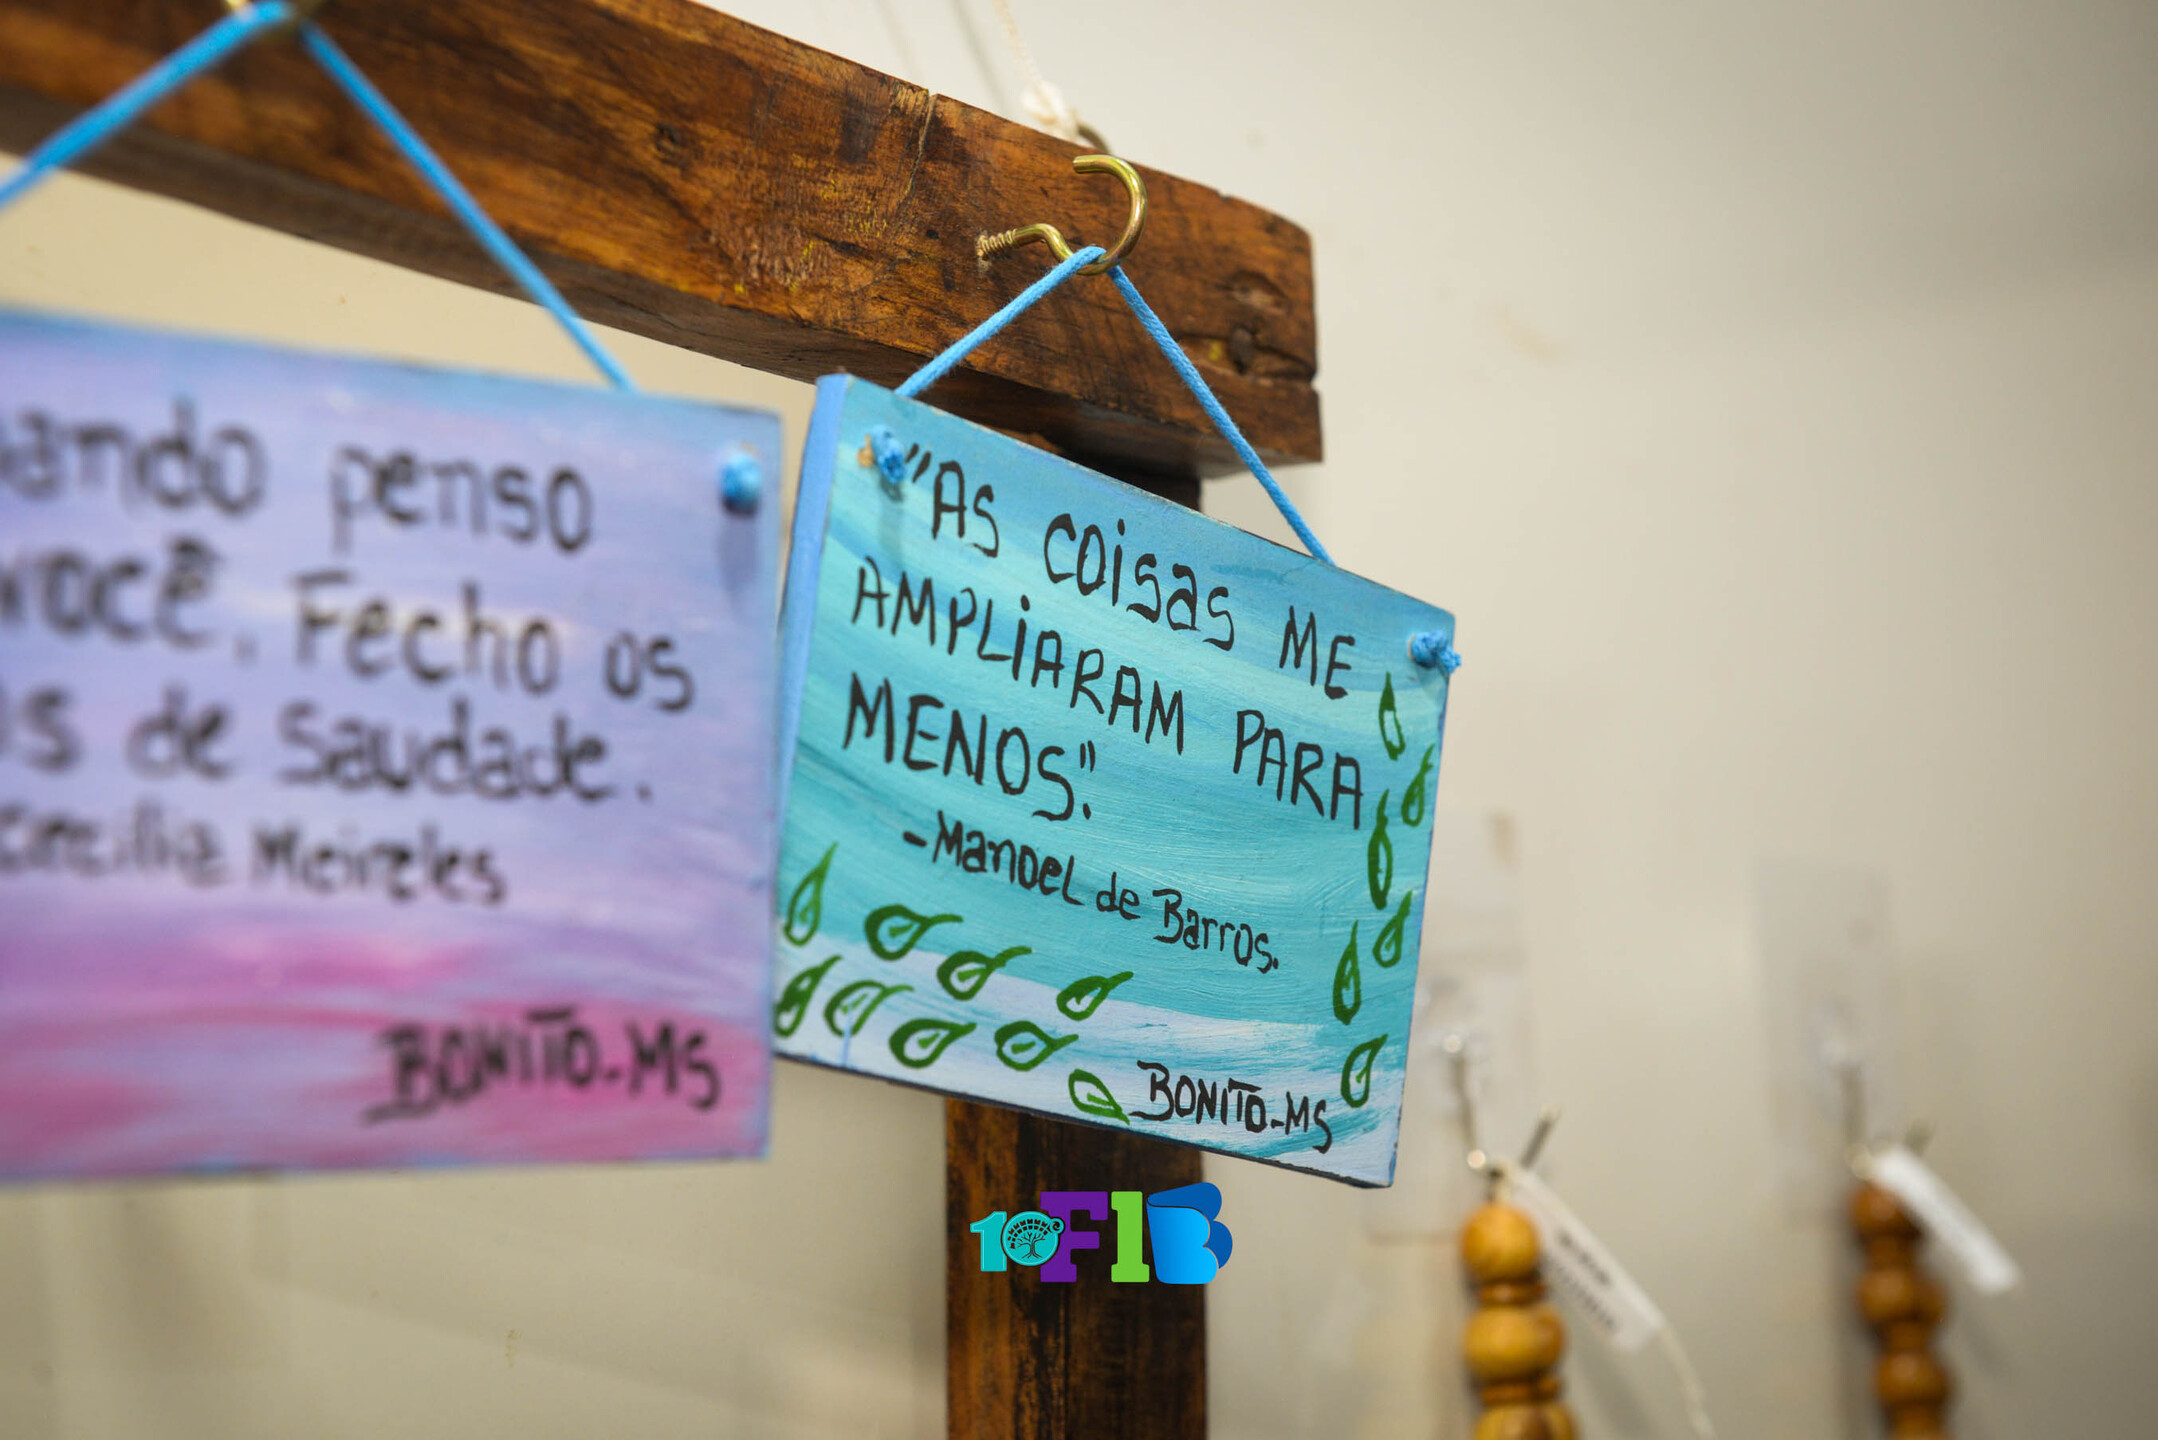 penso
você. Fecho os
de saudade.
Cecilia Meireles
BONITO-MS
"AS COISAS ME
AMPLIARAM PARA
MENOS."
-Manoel de Barros.
BONITO-MS
10 FIB